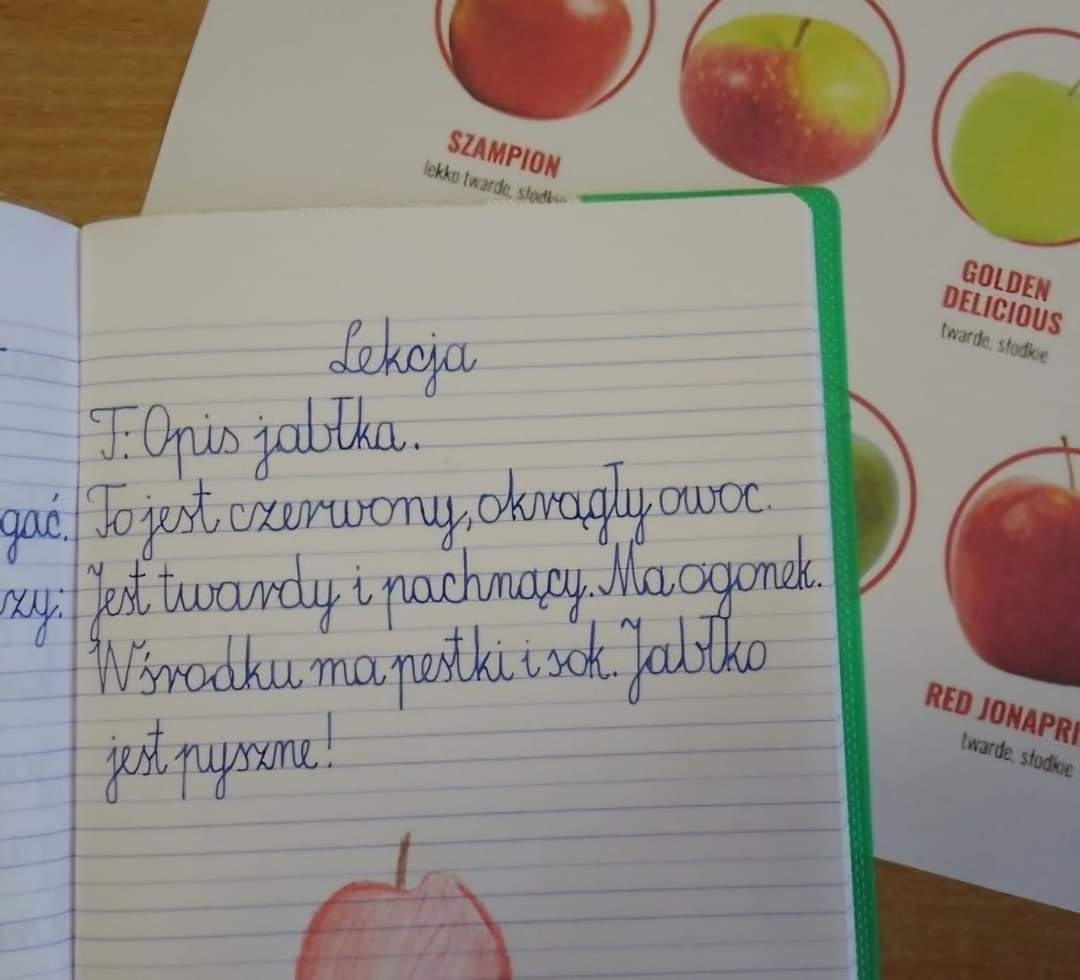 SZAMPION
lekko twarde, słodkie
GOLDEN
DELICIOUS
twarde, słodkie
RED JONAPRI
twarde, słodkie
Lekcja
T: Opis jabłka.
gać.
To jest czerwony, okrągły owoc.
zy:
Jest twardy i pachnący. Ma ogonek.
W środku ma pestki i sok. Jabłko
jest pyszne!